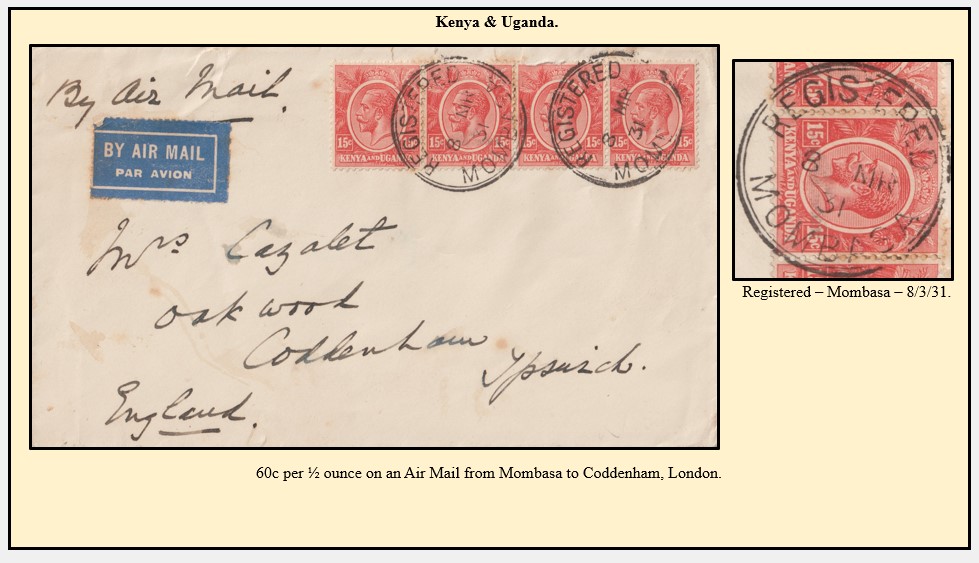 Kenya & Uganda.
By Air Mail.
BY AIR MAIL
PAR AVION
15c 15c 15c 15c 15c
KENYA AND UGANDA KENYA AND UGANDA
REGISTERED
8 MR 31
MOMBASA
REGISTERED
8 MR 31
Mrs Cazalet
Oakwood
Coddenham
Ipswich.
England.
REGISTERED
8 MR 31
MOMBASA
15c 15c
KENYA AND UGANDA
Registered – Mombasa – 8/3/31.
60c per ½ ounce on an Air Mail from Mombasa to Coddenham, London.